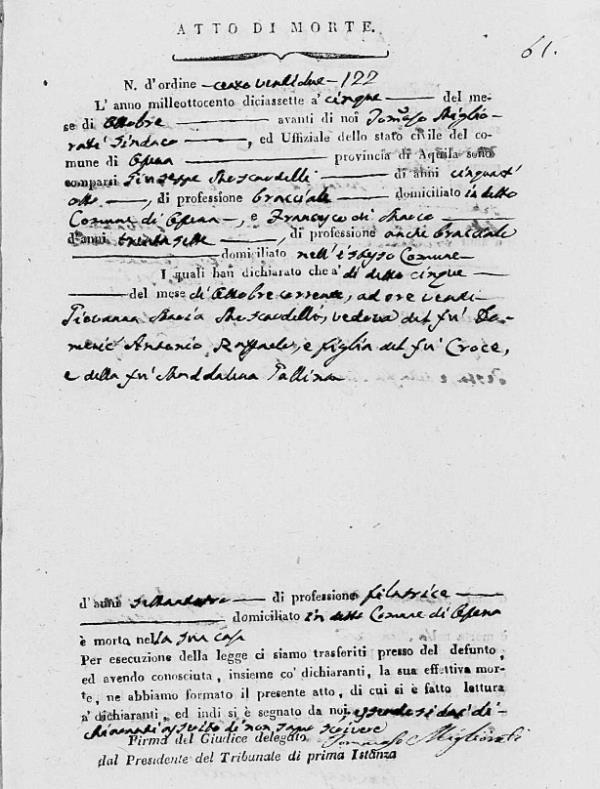 ATTO DI MORTE.
61.
N. d'ordine cento ventidue 122
L' anno milleottocento diciassette a' cinque del me-
se di Ottobre avanti di noi Tommaso Miglio-
rati Sindaco, ed Uffiziale dello stato civile del co-
mune di provincia di Aquila sono
comparsi Giuseppe di anni cinquant'
otto, di professione bracciale domiciliato in detto
Comune di, e Francesco di
d'anni trenta sette, di professione anche bracciale
domiciliato nell' istesso Comune
I quali han dichiarato che a' di detto cinque
del mese di Ottobre corrente, ad ore venti
Giovanna Maria, vedova del fu Do-
menic' Antonio Raffaele, e figlia del fu Croce,
e della fu Maddalena Gallina
d'anni di professione filatrice
domiciliato in detto Comune di
è morto nella sua casa
Per esecuzione della legge ci siamo trasferiti presso del defunto,
ed avendo conosciuta, insieme co' dichiaranti, la sua effettiva mor-
te, ne abbiamo formato il presente atto, di cui si è fatto lettura
a' dichiaranti, ed indi si è segnato da noi, essendosi da' di-
chiaranti asserito di non saper scrivere
Firma del Giudice delegato Tommaso Migliorati
dal Presidente del Tribunale di prima Istanza